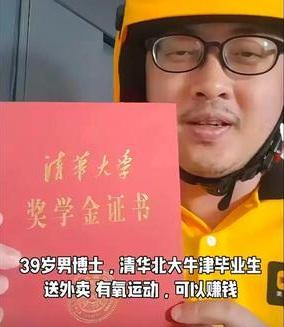 清华大学
奖学金证书
39岁男博士，清华北大牛津毕业生
送外卖 有氧运动，可以赚钱